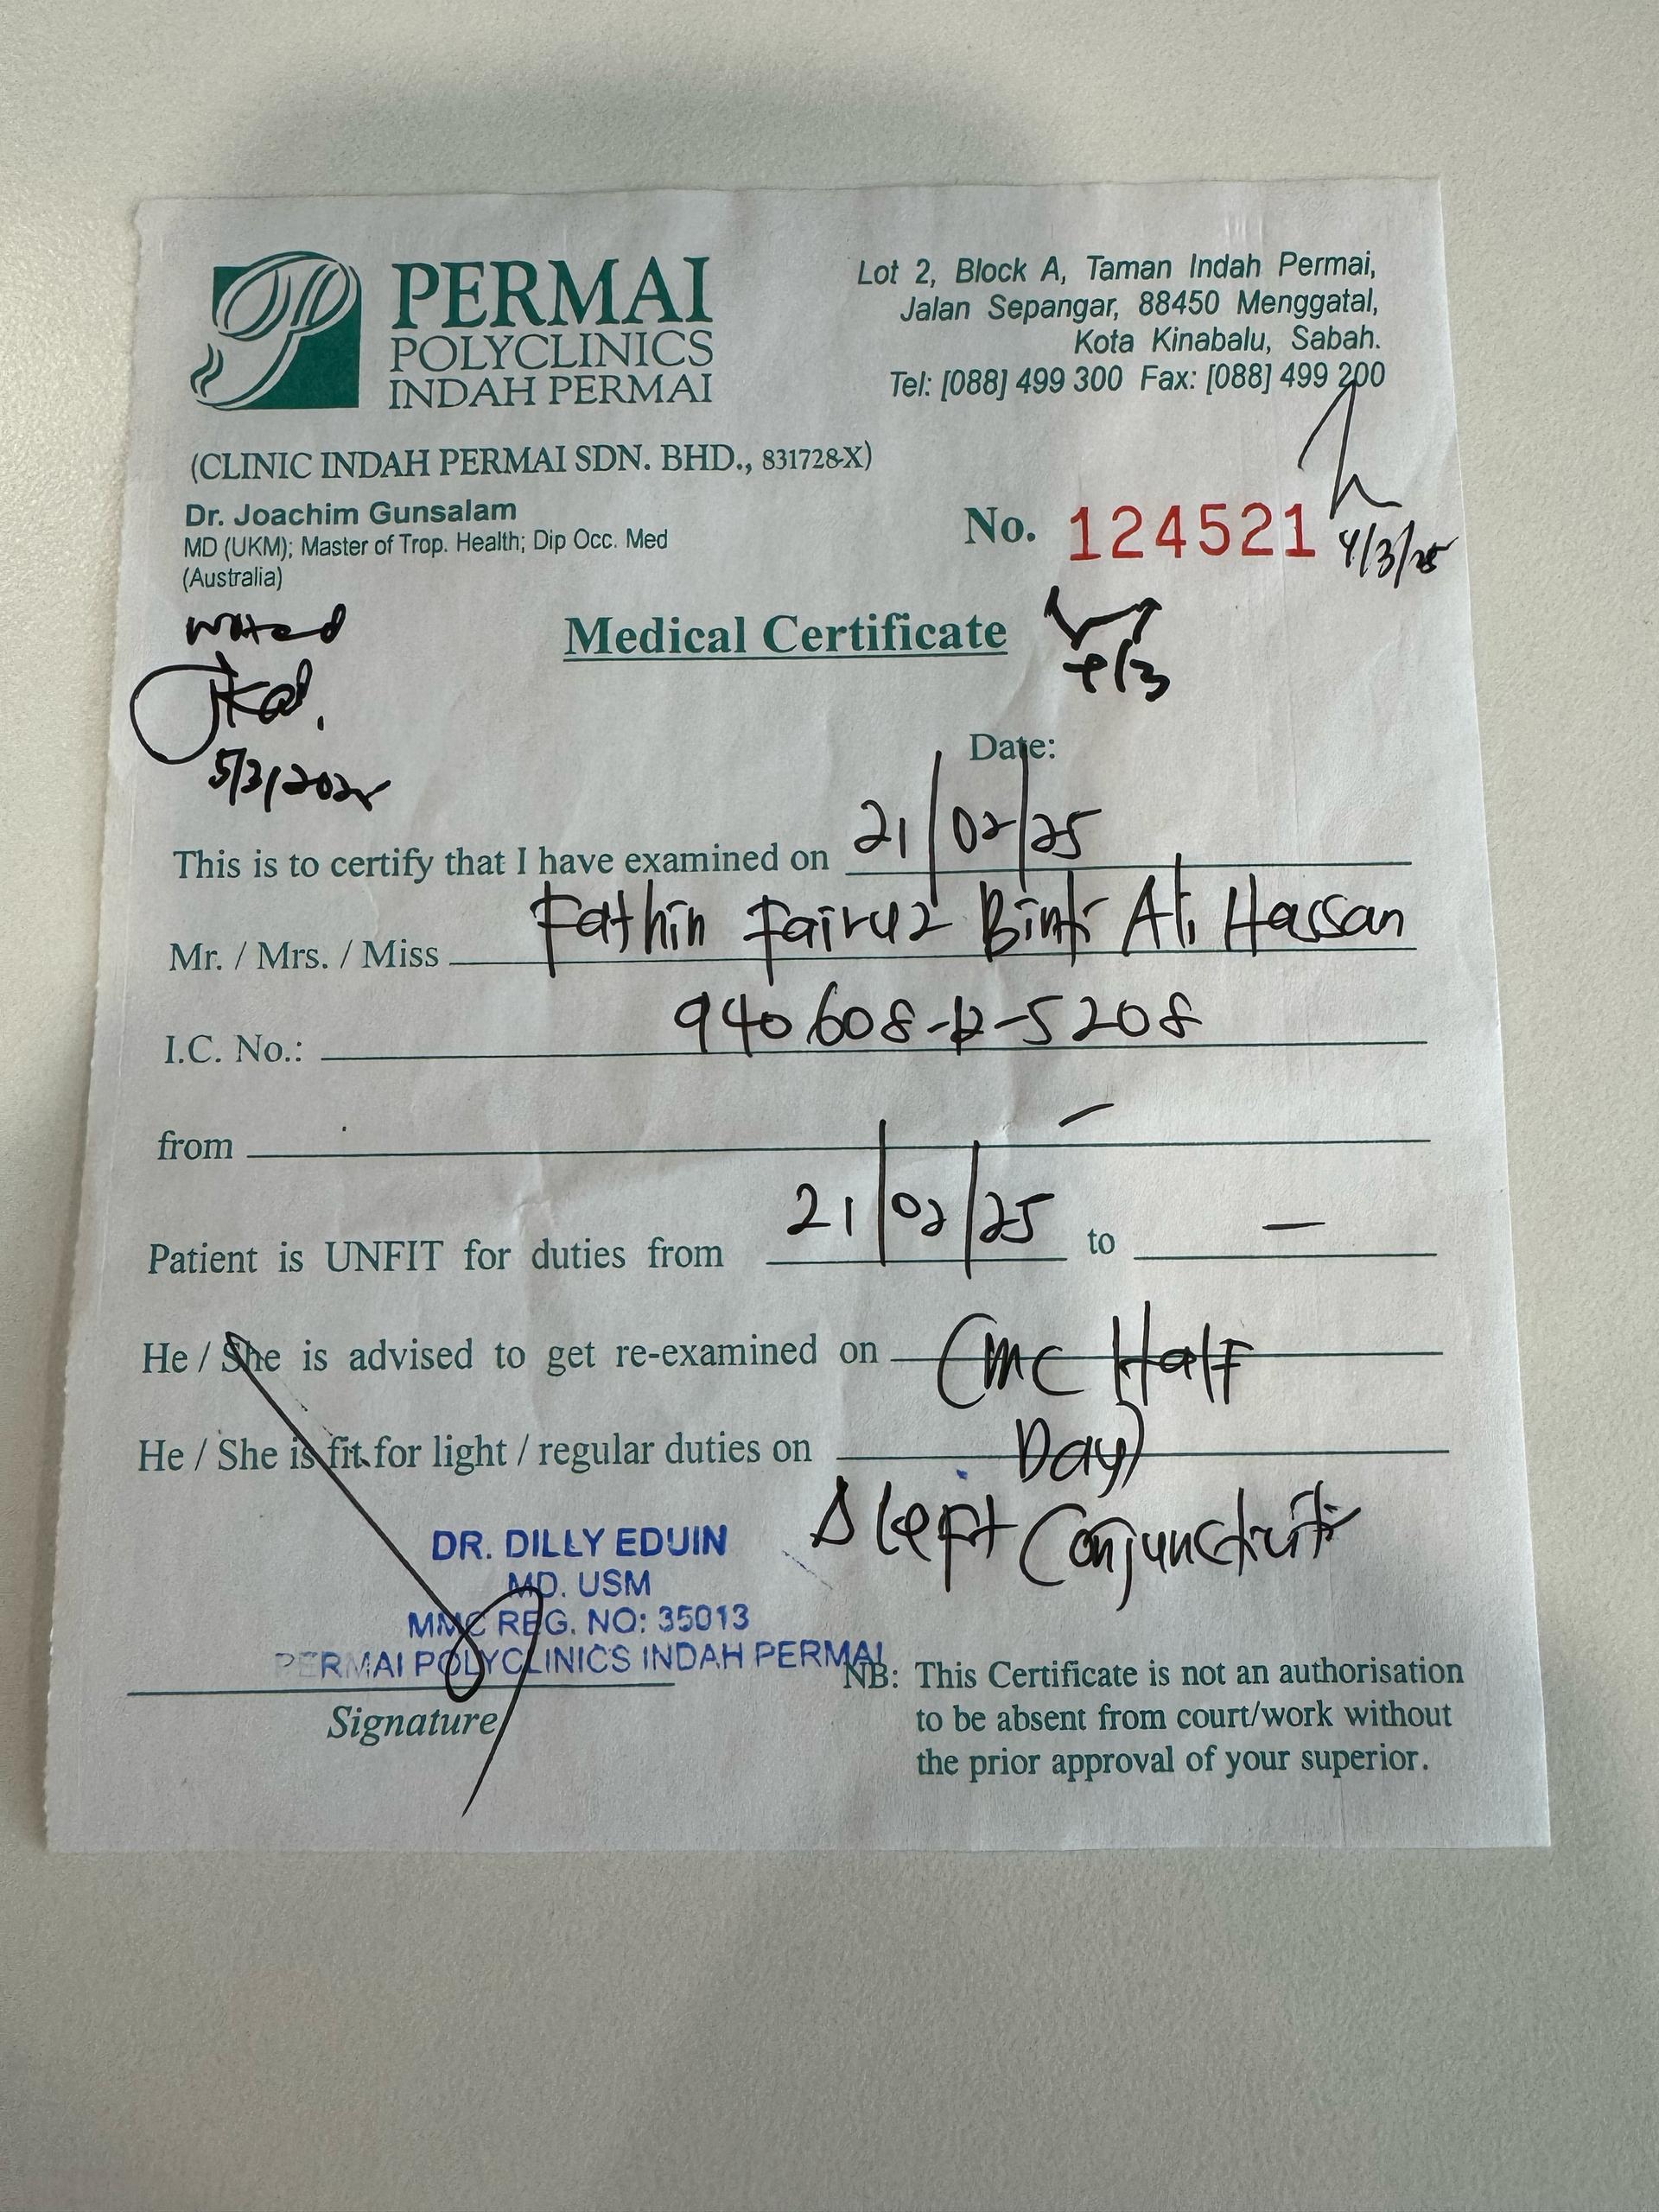 PERMAI
POLYCLINICS
INDAH PERMAI
Lot 2, Block A, Taman Indah Permai,
Jalan Sepangar, 88450 Menggatal,
Kota Kinabalu, Sabah.
Tel: [088] 499 300 Fax: [088] 499 200
(CLINIC INDAH PERMAI SDN. BHD., 831728-X)
Dr. Joachim Gunsalam
MD (UKM); Master of Trop. Health; Dip Occ. Med
(Australia)
No. 124521
4/3/25
noted
5/3/2025
Medical Certificate
Date:
This is to certify that I have examined on 21/02/25
Mr. / Mrs. / Miss Fathin Fairuz Binti Ali Hassan
I.C. No.: 940608-12-5208
from –
Patient is UNFIT for duties from 21/02/25 to –
He / She is advised to get re-examined on (MC Half
He / She is fit for light / regular duties on Day)
Δ left Conjunctivitis
DR. DILLY EDUIN
MD. USM
MMC REG. NO: 35013
PERMAI POLYCLINICS INDAH PERMAI
Signature
NB: This Certificate is not an authorisation
to be absent from court/work without
the prior approval of your superior.